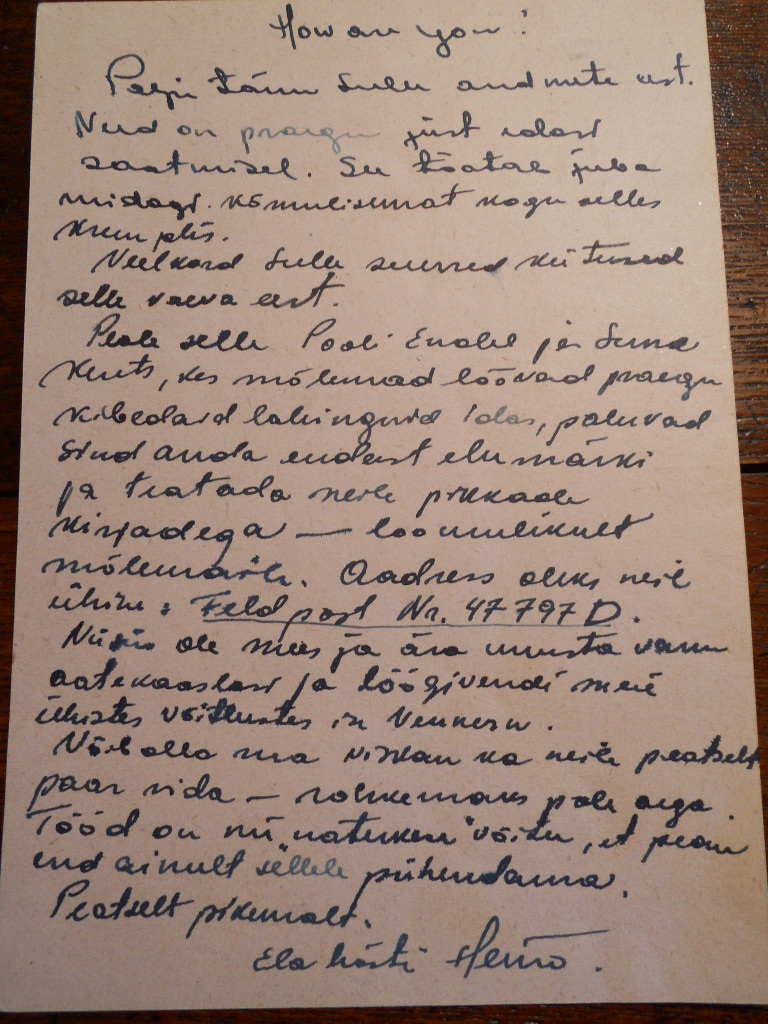 How are you!
Palju tänu Sulle andmete eest.
Need on praegu just edasi
saatmisel. Su töötab juba
midagi kogu selles
kremplis.
Veelkord Sulle suured kiitused
selle vaeva eest.
Peale selle Pooli Endel ja
Kents, kes mõlemad löövad praegu
kibedaid lahinguid Idas, paluvad
Sind anda endast elumärki
ja teatada neile pikkade
kirjadega — loomulikult
mõlemaile. Aadress oleks neil
ühine: Feldpost Nr. 47797 D.
Nii siis ole mees ja ära unusta vanu
aatekaaslasi ja töögivendi meie
ühistes võitlustes in Vennern.
Võib olla ma viskan ka neile peatselt
paar rida — rohkemaks pole aega.
Tööd on nii "natukene" võitu, et pean
end ainult sellele pühendama.
Peatselt pikemalt.
Ela hästi Heino.